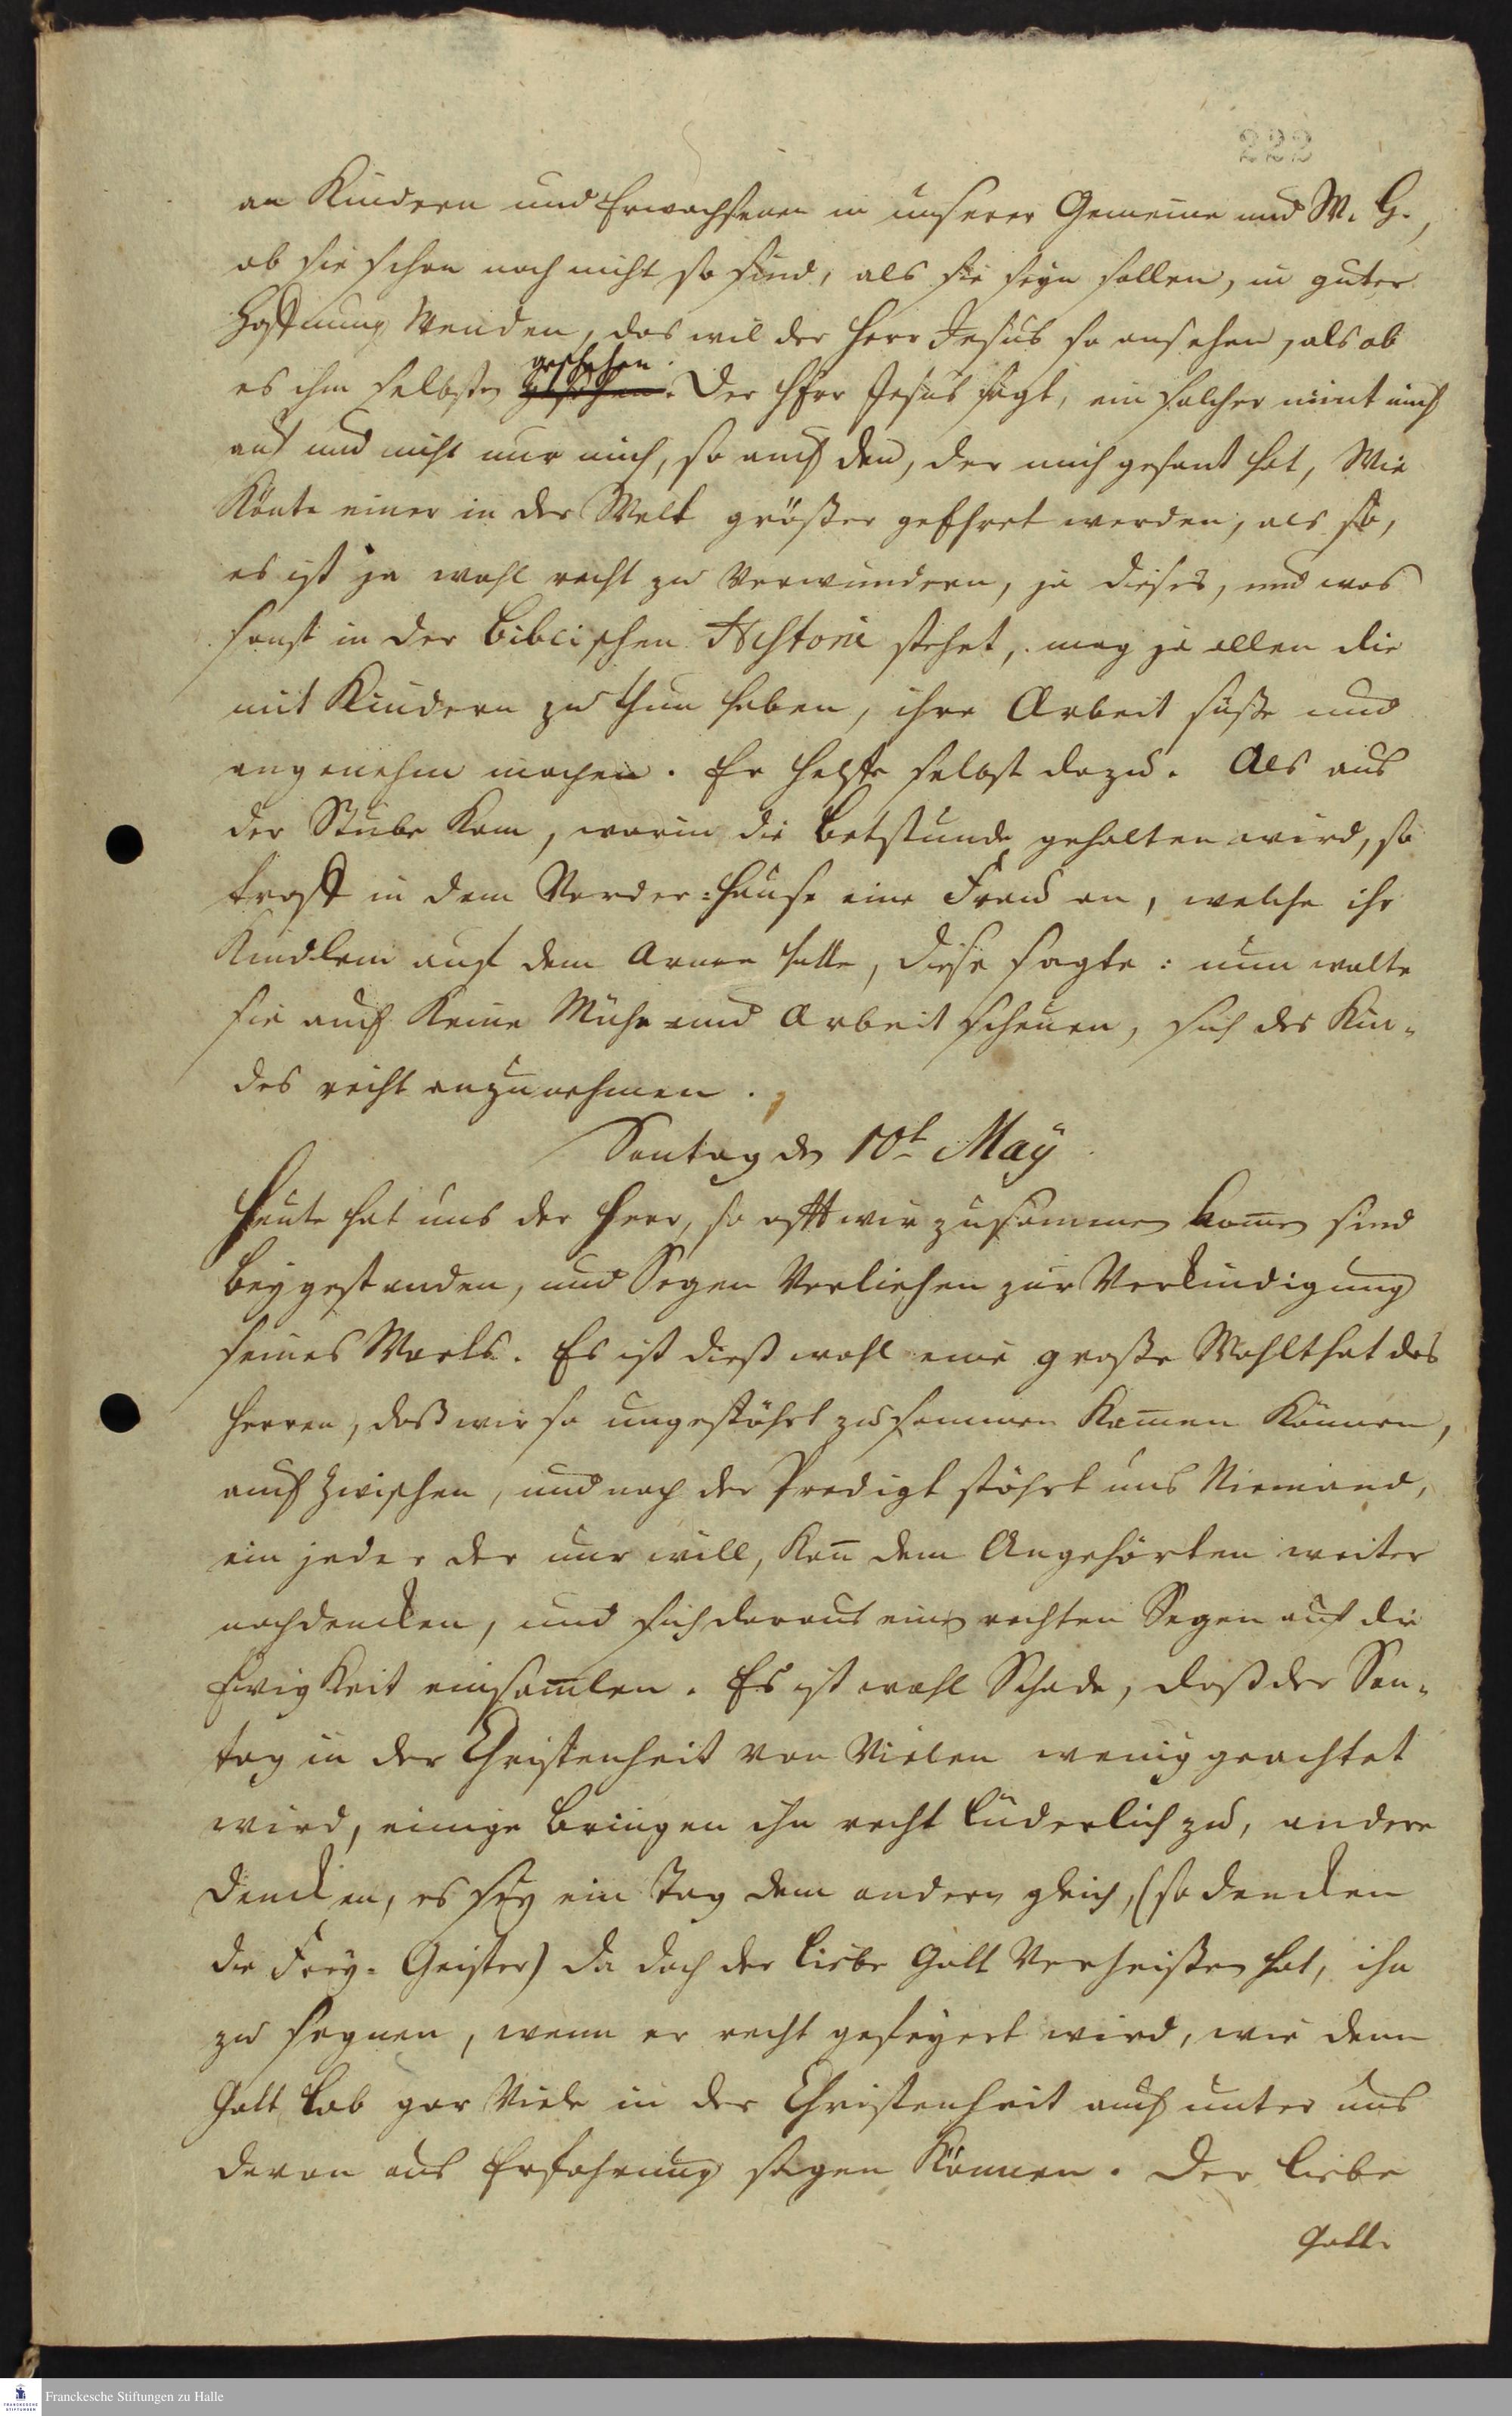 222
an Kindern und Erwachsenen in unserer Gemeine und W. H.,
ob sie schon noch nicht so sind, als sie seyn sollen, in guter
Hoffnung Wenden, das wil der Herr Jesus so ansehen, als ob
geschehen.
es ihm selbsten Der HErr Jesus sagt, ein solcher nimt mich
auf und nicht nur mich, so auch den, der mich gesant hat, Wie
Könte einer in der Welt größer geEhret werden, als so,
es ist ja wohl recht zu Verwundern, ja dieses, und was
sonst in der Biblischen Historie stehet, mag ja allen die
mit Kindern zu thun haben, ihre Arbeit süsse und
angenehm machen. Er helffe selbst dazu. Als aus
der Stube Kam, worin die Betstunde gehalten wird, so
traff in dem Vorder-Hause eine Frau an, welche ihr
Kindlein auf dem Armen hatte, diese sagte: nun wolte
sie auch Keine Mühe und Arbeit scheuen, sich des Kin-
des recht anzunehmen.
Sontag den 10t May
Heute hat uns der Herr, so offt wir zusammen komen sind
beygestanden, und Segen Verliehen zur Verkündigung
seines Worts. Es ist dieß wohl eine grosse Wohlthat des
Herren, daß wir so ungestöhrt zusammen Komen Können,
auch Zwischen, und nach der Predigt stöhrt uns Niemand,
ein jeder der nur will, Kan dem Angehörten weiter
nachdencken, und sich daraus einen rechten Segen auf die
Ewigkeit einsamlen. Es ist wohl Schade, daß der Son-
tag in der Christenheit von Vielen wenig geachtet
wird, einige bringen ihn recht Lüderlich zu, andere
Dencken, es sey ein Tag dem andern gleich, (so dencken
die Frey-Geister) da doch der Liebe Gott Verheissen hat, ihn
zu segnen, wenn er recht gefeyert wird, wie denn
Gott Lob gar Viele in der Christenheit auch unter uns
davon aus Erfahrung sagen Können. Der Liebe
Gott
Franckesche Stiftungen zu Halle